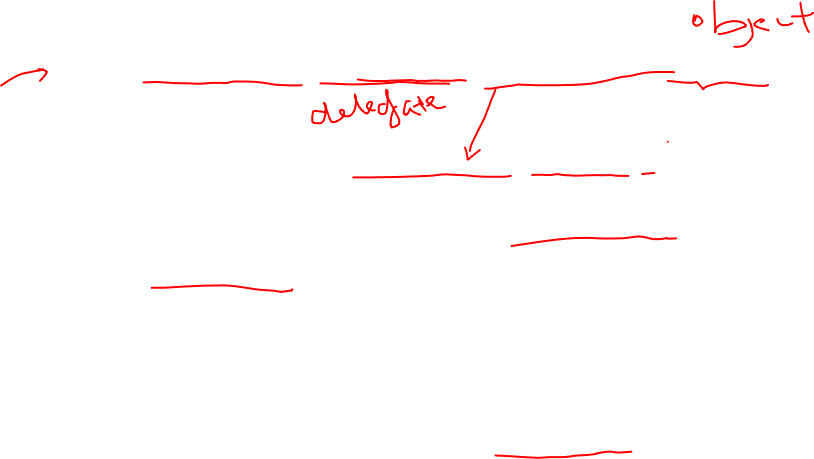 object
delegate